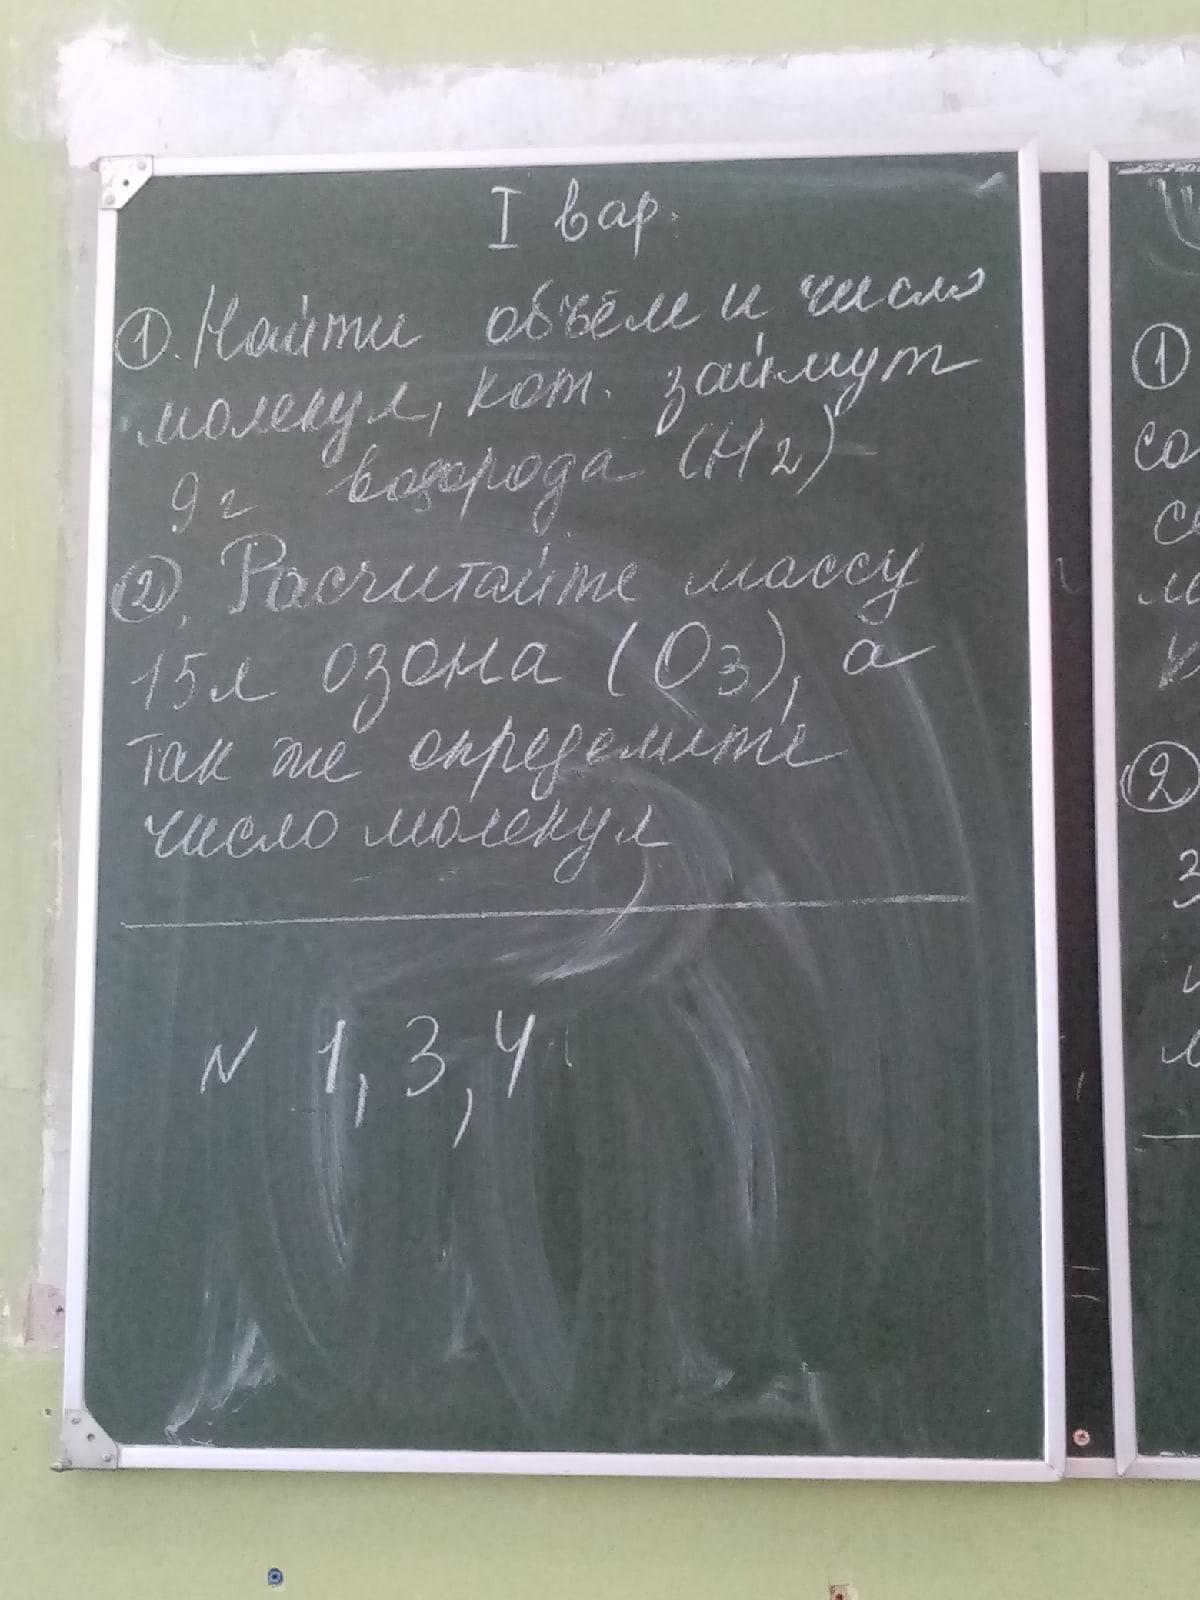 I вар.
① Найти объём и число
молекул, кот. займут
9 г водорода (H2)
② Расчитайте массу
15 л озона (O3), а
так же определите
число молекул
N 1, 3, 4
①
со
②